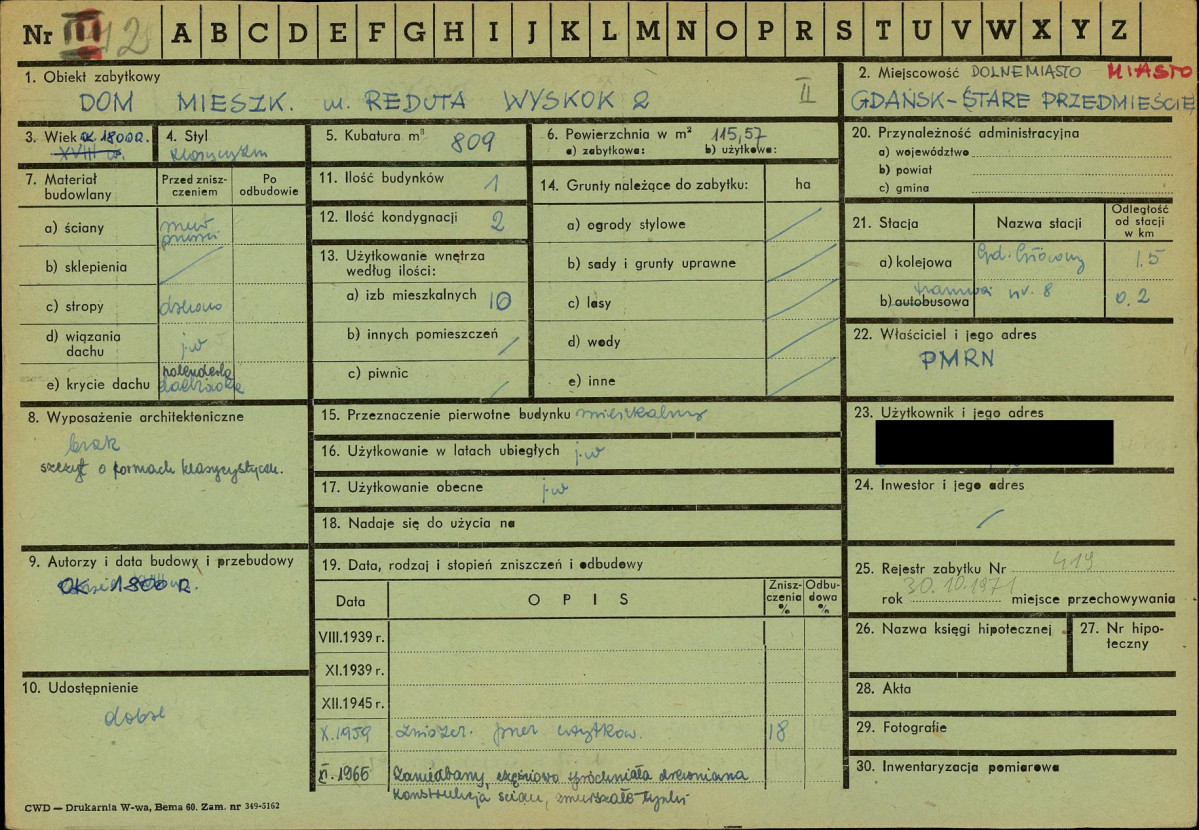 Nr III A B C D E F G H I J K L M N O P R S T U V W X Y Z
1. Obiekt zabytkowy
DOM MIESZK. ul. REDUTA WYSKOK 2
II
2. Miejscowość DOLNE MIASTO MIASTO
GDAŃSK-STARE PRZEDMIEŚCIE
3. Wiek ok. 1800 R.
XVIII w.
4. Styl
klasycyzm
5. Kubatura m³ 809
6. Powierzchnia w m² 115,57
a) zabytkowa: b) użytkowa:
7. Materiał budowlany
Przed zniszczeniem
Po odbudowie
a) ściany mur pruski
b) sklepienia
c) stropy drewno
d) wiązania dachu j.w
e) krycie dachu holenderka dachówka
8. Wyposażenie architektoniczne
brak
szczyt o formach klasycystycz.
9. Autorzy i data budowy i przebudowy
OK. 1800 R.
10. Udostępnienie
dobre
11. Ilość budynków 1
12. Ilość kondygnacji 2
13. Użytkowanie wnętrza według ilości:
a) izb mieszkalnych 10
b) innych pomieszczeń
c) piwnic
14. Grunty należące do zabytku: ha
a) ogrody stylowe
b) sady i grunty uprawne
c) lasy
d) wody
e) inne
15. Przeznaczenie pierwotne budynku mieszkalny
16. Użytkowanie w latach ubiegłych j.w
17. Użytkowanie obecne j.w
18. Nadaje się do użycia na
19. Data, rodzaj i stopień zniszczeń i odbudowy
Data OPIS Zniszczenia % Odbudowa %
VIII.1939 r.
XI.1939 r.
XII.1945 r.
X.1959 zniszcz. przez użytkow. 18
XI.1965 Zaniedbany, częściowo spróchniała drewniana
konstrukcja ścian, zmurszałe tynki
20. Przynależność administracyjna
a) województwo
b) powiat
c) gmina
21. Stacja Nazwa stacji Odległość od stacji w km
a) kolejowa Gd. Główny 1.5
b) autobusowa tramwaj nr. 8 0.2
22. Właściciel i jego adres
PMRN
23. Użytkownik i jego adres
24. Inwestor i jego adres
25. Rejestr zabytku Nr 419
rok 30.10.1971 miejsce przechowywania
26. Nazwa księgi hipotecznej
27. Nr hipoteczny
28. Akta
29. Fotografie
30. Inwentaryzacja pomiarowa
CWD — Drukarnia W-wa, Bema 60. Zam. nr 349-5162